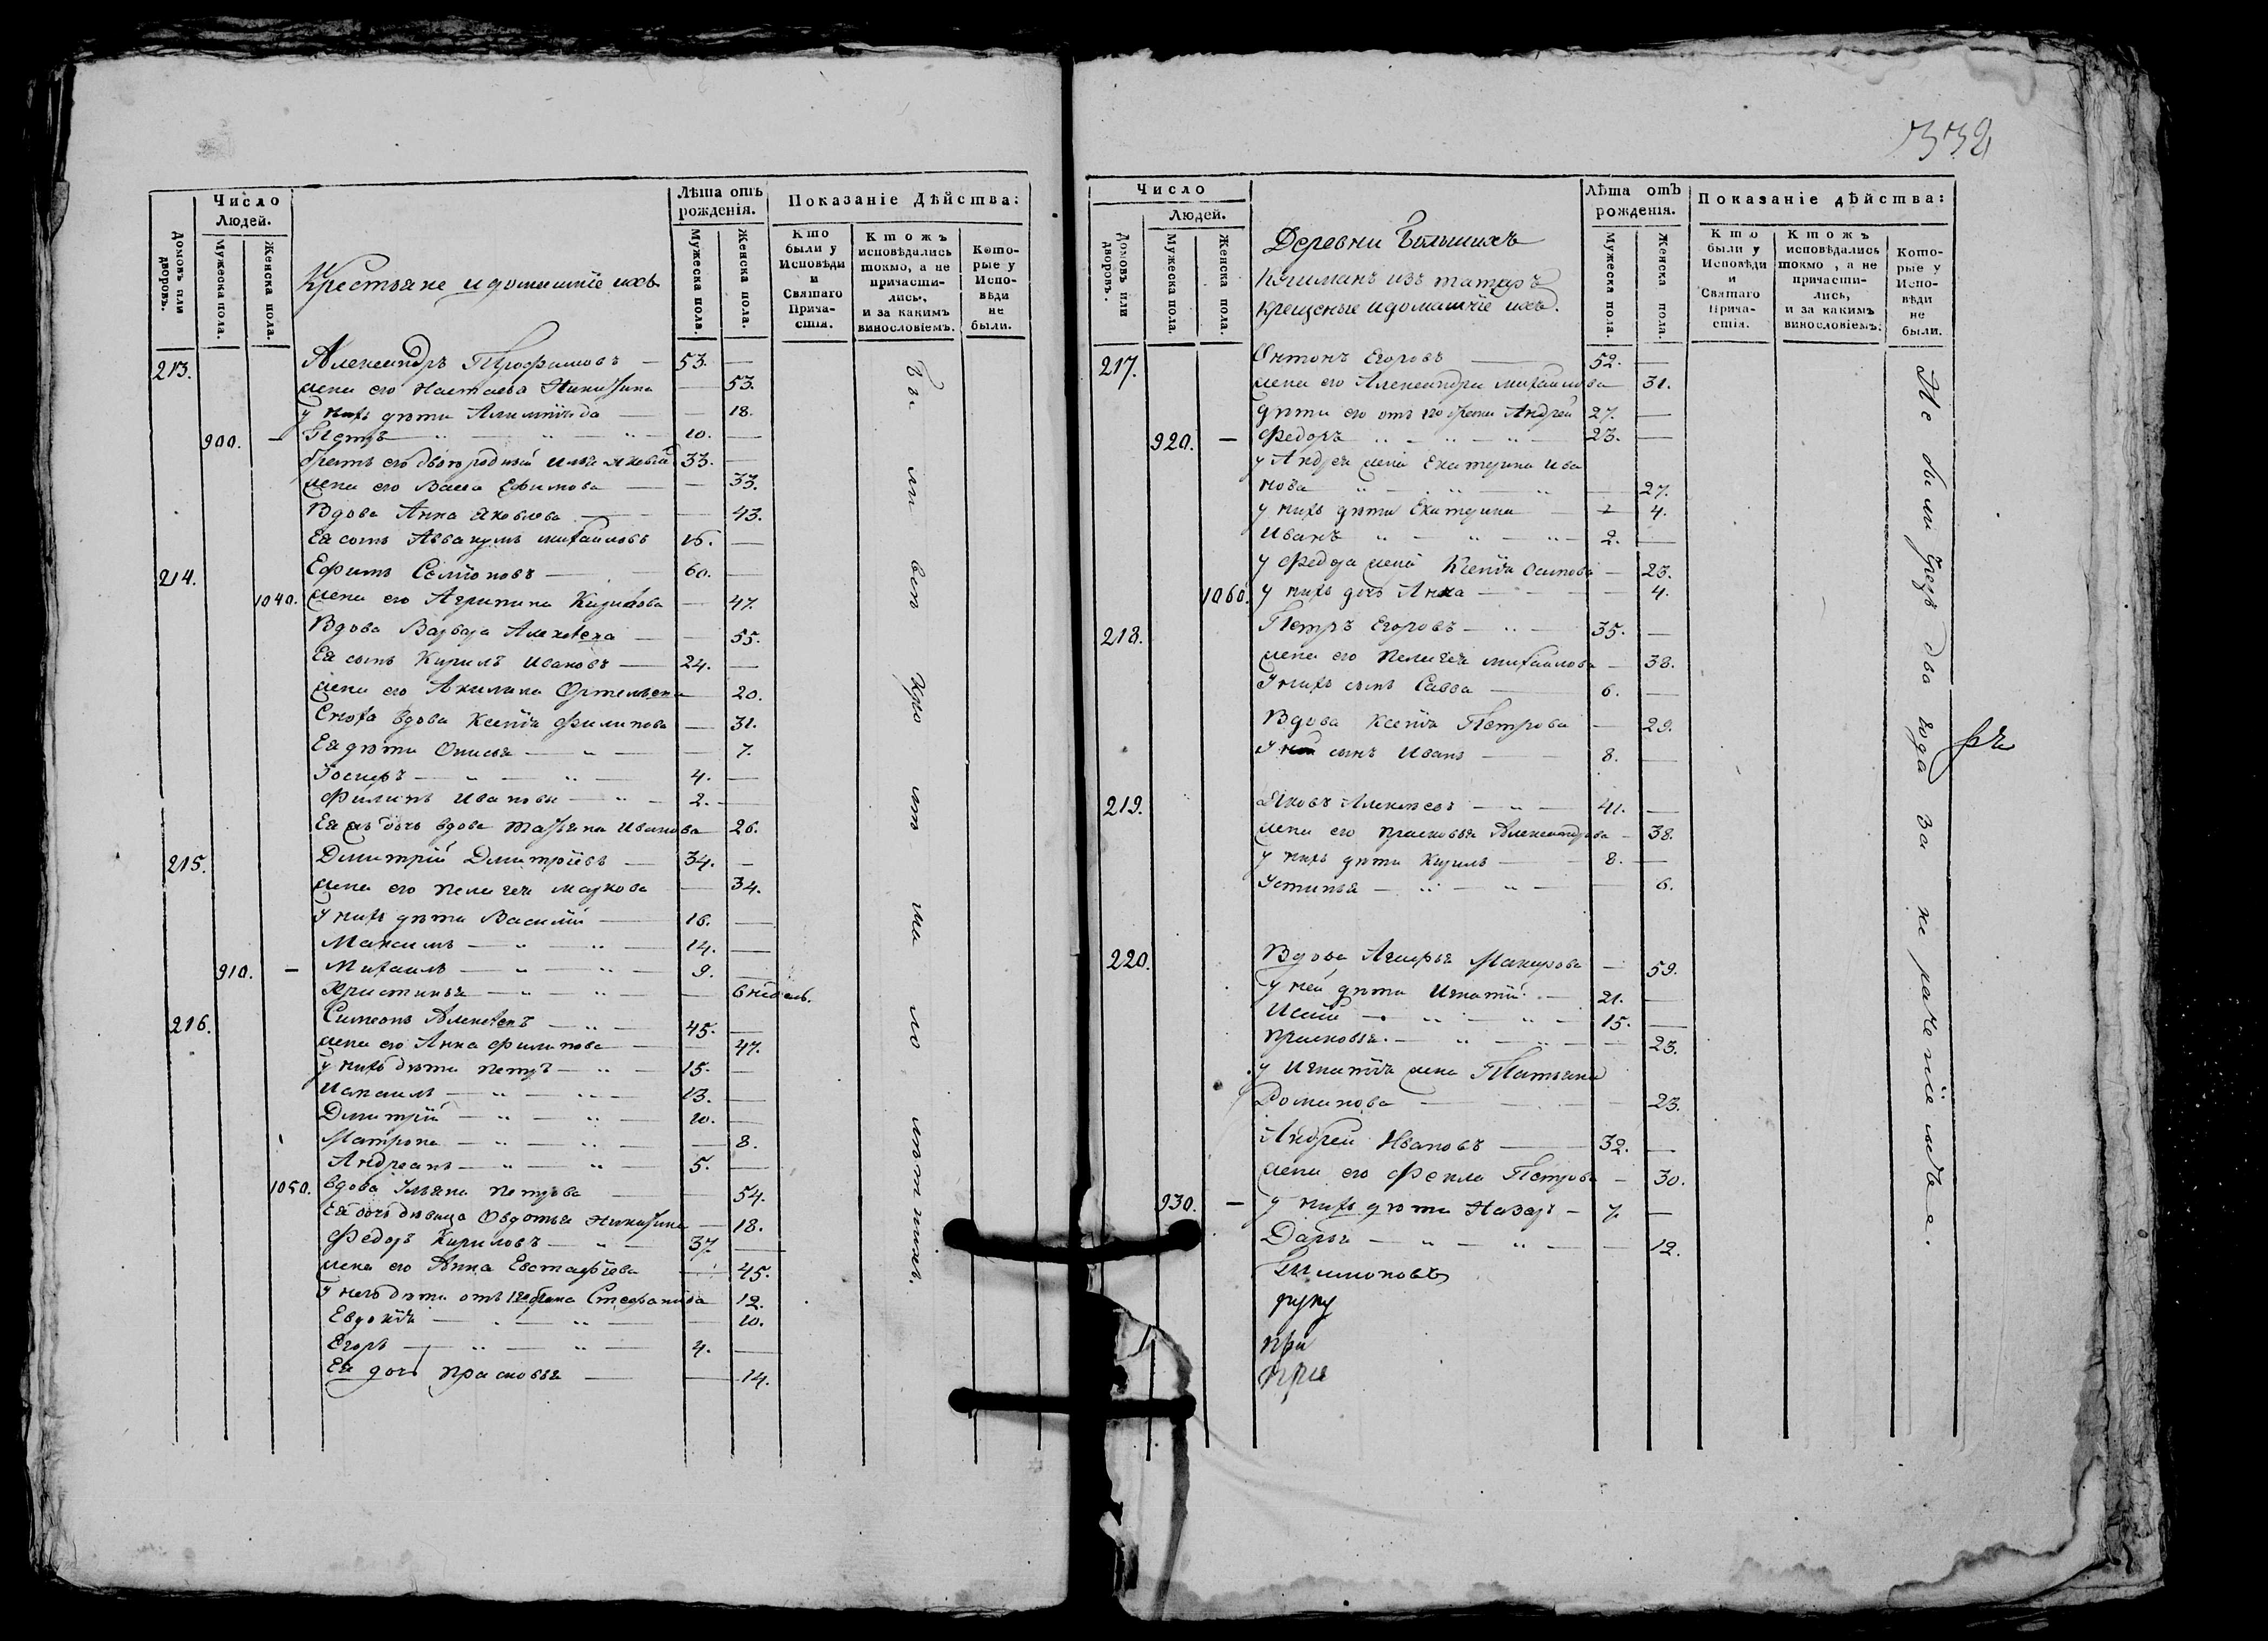 Число
Людей.
Домовъ или дворовъ.
Мужеска пола.
Женска пола.
Крестьяне и домашніе ихъ
Лѣта отъ рожденія.
Мужеска пола.
Женска пола.
Показаніе Дѣйства:
Кто были у Исповѣди и Святаго Прича-стія.
Ктожъ исповѣдались токмо, а не причасти-лись, и за какимъ винословіемъ.
Кото-рые у Испо-вѣди не были.
213. Александръ Трофимовъ — 53. —
жена его Настасья Никитина — 53.
у нихъ дѣти — 18.
900. — Петръ — 10. —
братъ его двоюродный Илья 33. —
жена его Васса Ефимова — 33.
Вдова Анна Яковлева — 43.
Ея сынъ Аввакумъ Михайловъ 16. —
214. Ефимъ Семіоновъ — 60. —
1040. жена его Агрипина Кирилова — 47.
Вдова Варвара Алексѣева — 55.
Ея сынъ Кирилъ Ивановъ — 24. —
жена его Акилина — 20.
Сноха вдова Ксенія Филипова — 31.
Ея дѣти — 7.
4. —
Филипъ Ивановы — 2. —
Ея дочь вдова Татьяна Иванова 26.
215. Дмитрій Дмитріевъ — 34. —
жена его Пелагея Маркова — 34.
у нихъ дѣти Василій — 16. —
Максимъ — 14. —
910. — Михаилъ — 9. —
Христинья — 6 недель.
216. Симеонъ Алексѣевъ — 45. —
жена его Анна Филипова — 47.
у нихъ дѣти Петръ — 15. —
13. —
Дмитрій — 10. —
Матрона — 8.
Андреанъ — 5. —
1050. вдова Ульяна Петрова — 54.
Ея дочь дѣвица Овдотья Никитина — 18.
Федоръ Кириловъ — 37. —
жена его Анна Евстафіева — 45.
у него дѣти отъ 1й жены Стефанида 12.
Евдокія — 10.
Егоръ — 4. —
Ея дочь Прасковья — 14.
Бы ли всѣ
332
Число
Людей.
Домовъ или дворовъ.
Мужеска пола.
Женска пола.
Деревни Большихъ
изъ татаръ
крещеные и домашніе ихъ.
Лѣта отъ рожденія.
Мужеска пола.
Женска пола.
Показаніе дѣйства:
Кто были у Исповѣди и Святаго Прича-стія.
Ктожъ исповѣдались токмо, а не причасти-лись, и за какимъ винословіемъ.
Кото-рые у Испо-вѣди не были.
217. Онтонъ Егоровъ — 52. —
жена его Александра Михайлова 31.
дѣти его отъ 1й жены Андрей 27. —
920. — Федоръ — 23. —
у Андрея жена Екатерина Ива
нова — 27.
у нихъ дѣти Екатерина — 4.
Иванъ — 2. —
у Федора жена Ксенія Осипова — 23.
1060. у нихъ дочь Анна — 4.
218. Петръ Егоровъ — 35. —
жена его Пелагея Михайлова — 38.
У нихъ сынъ Савва — 6. —
Вдова Ксенія Петрова — 29.
у ней сынъ Иванъ — 8. —
219. Яковъ Алексѣевъ — 41. —
жена его Прасковья Александрова — 38.
у нихъ дѣти Кирилъ — 8. —
Устинья — 6.
220. Вдова Агафья Макарова — 59.
У ней дѣти Игнатій — 21. —
15. —
Прасковья — 23.
у Игнатія жена Татьяна
23.
Андрей Ивановъ — 32. —
жена его Фекла Петрова — 30.
930. — у нихъ дѣти Назаръ — 7. —
Дарья — 12.
руку
при
при
Не были чрезъ два года за не раченіемъ.